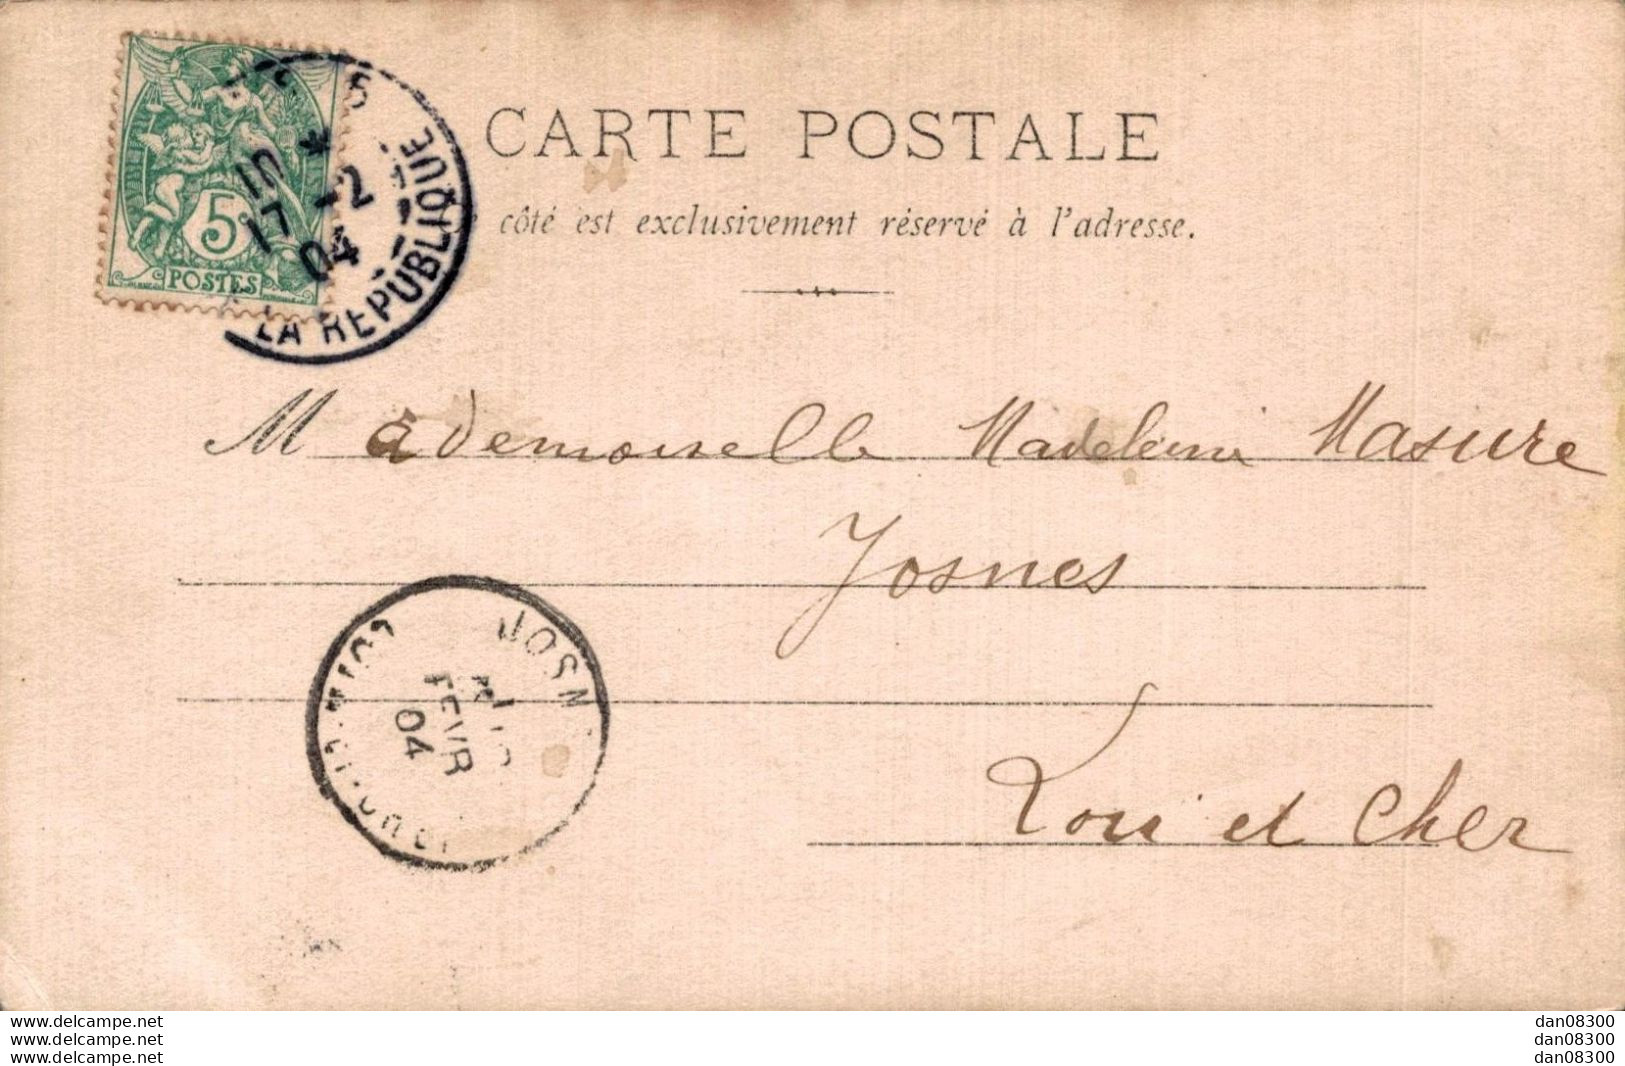 CARTE POSTALE
côté est exclusivement réservé à l'adresse.
5c
POSTES
5
10 *
17 -2
04
LA REPUBLIQUE
Mademoiselle Madeleine Masure
Josnes
JOSN
FEVR
04
Loir et Cher
www.delcampe.net
www.delcampe.net
www.delcampe.net
dan08300
dan08300
dan08300